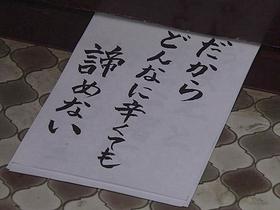 だから
どんなに辛くても
諦めない